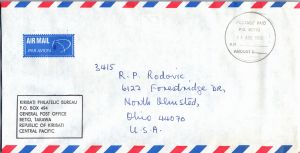 AIR MAIL
PAR AVION
POSTAGE PAID
P.O. BETIO
3415
R. P. Rodovic
6127 Forestridge DR,
North Olmsted,
Ohio 44070
U.S.A.
KIRIBATI PHILATELIC BUREAU
P.O. BOX 494
GENERAL POST OFFICE
BETIO, TARAWA
REPUBLIC OF KIRIBATI
CENTRAL PACIFIC